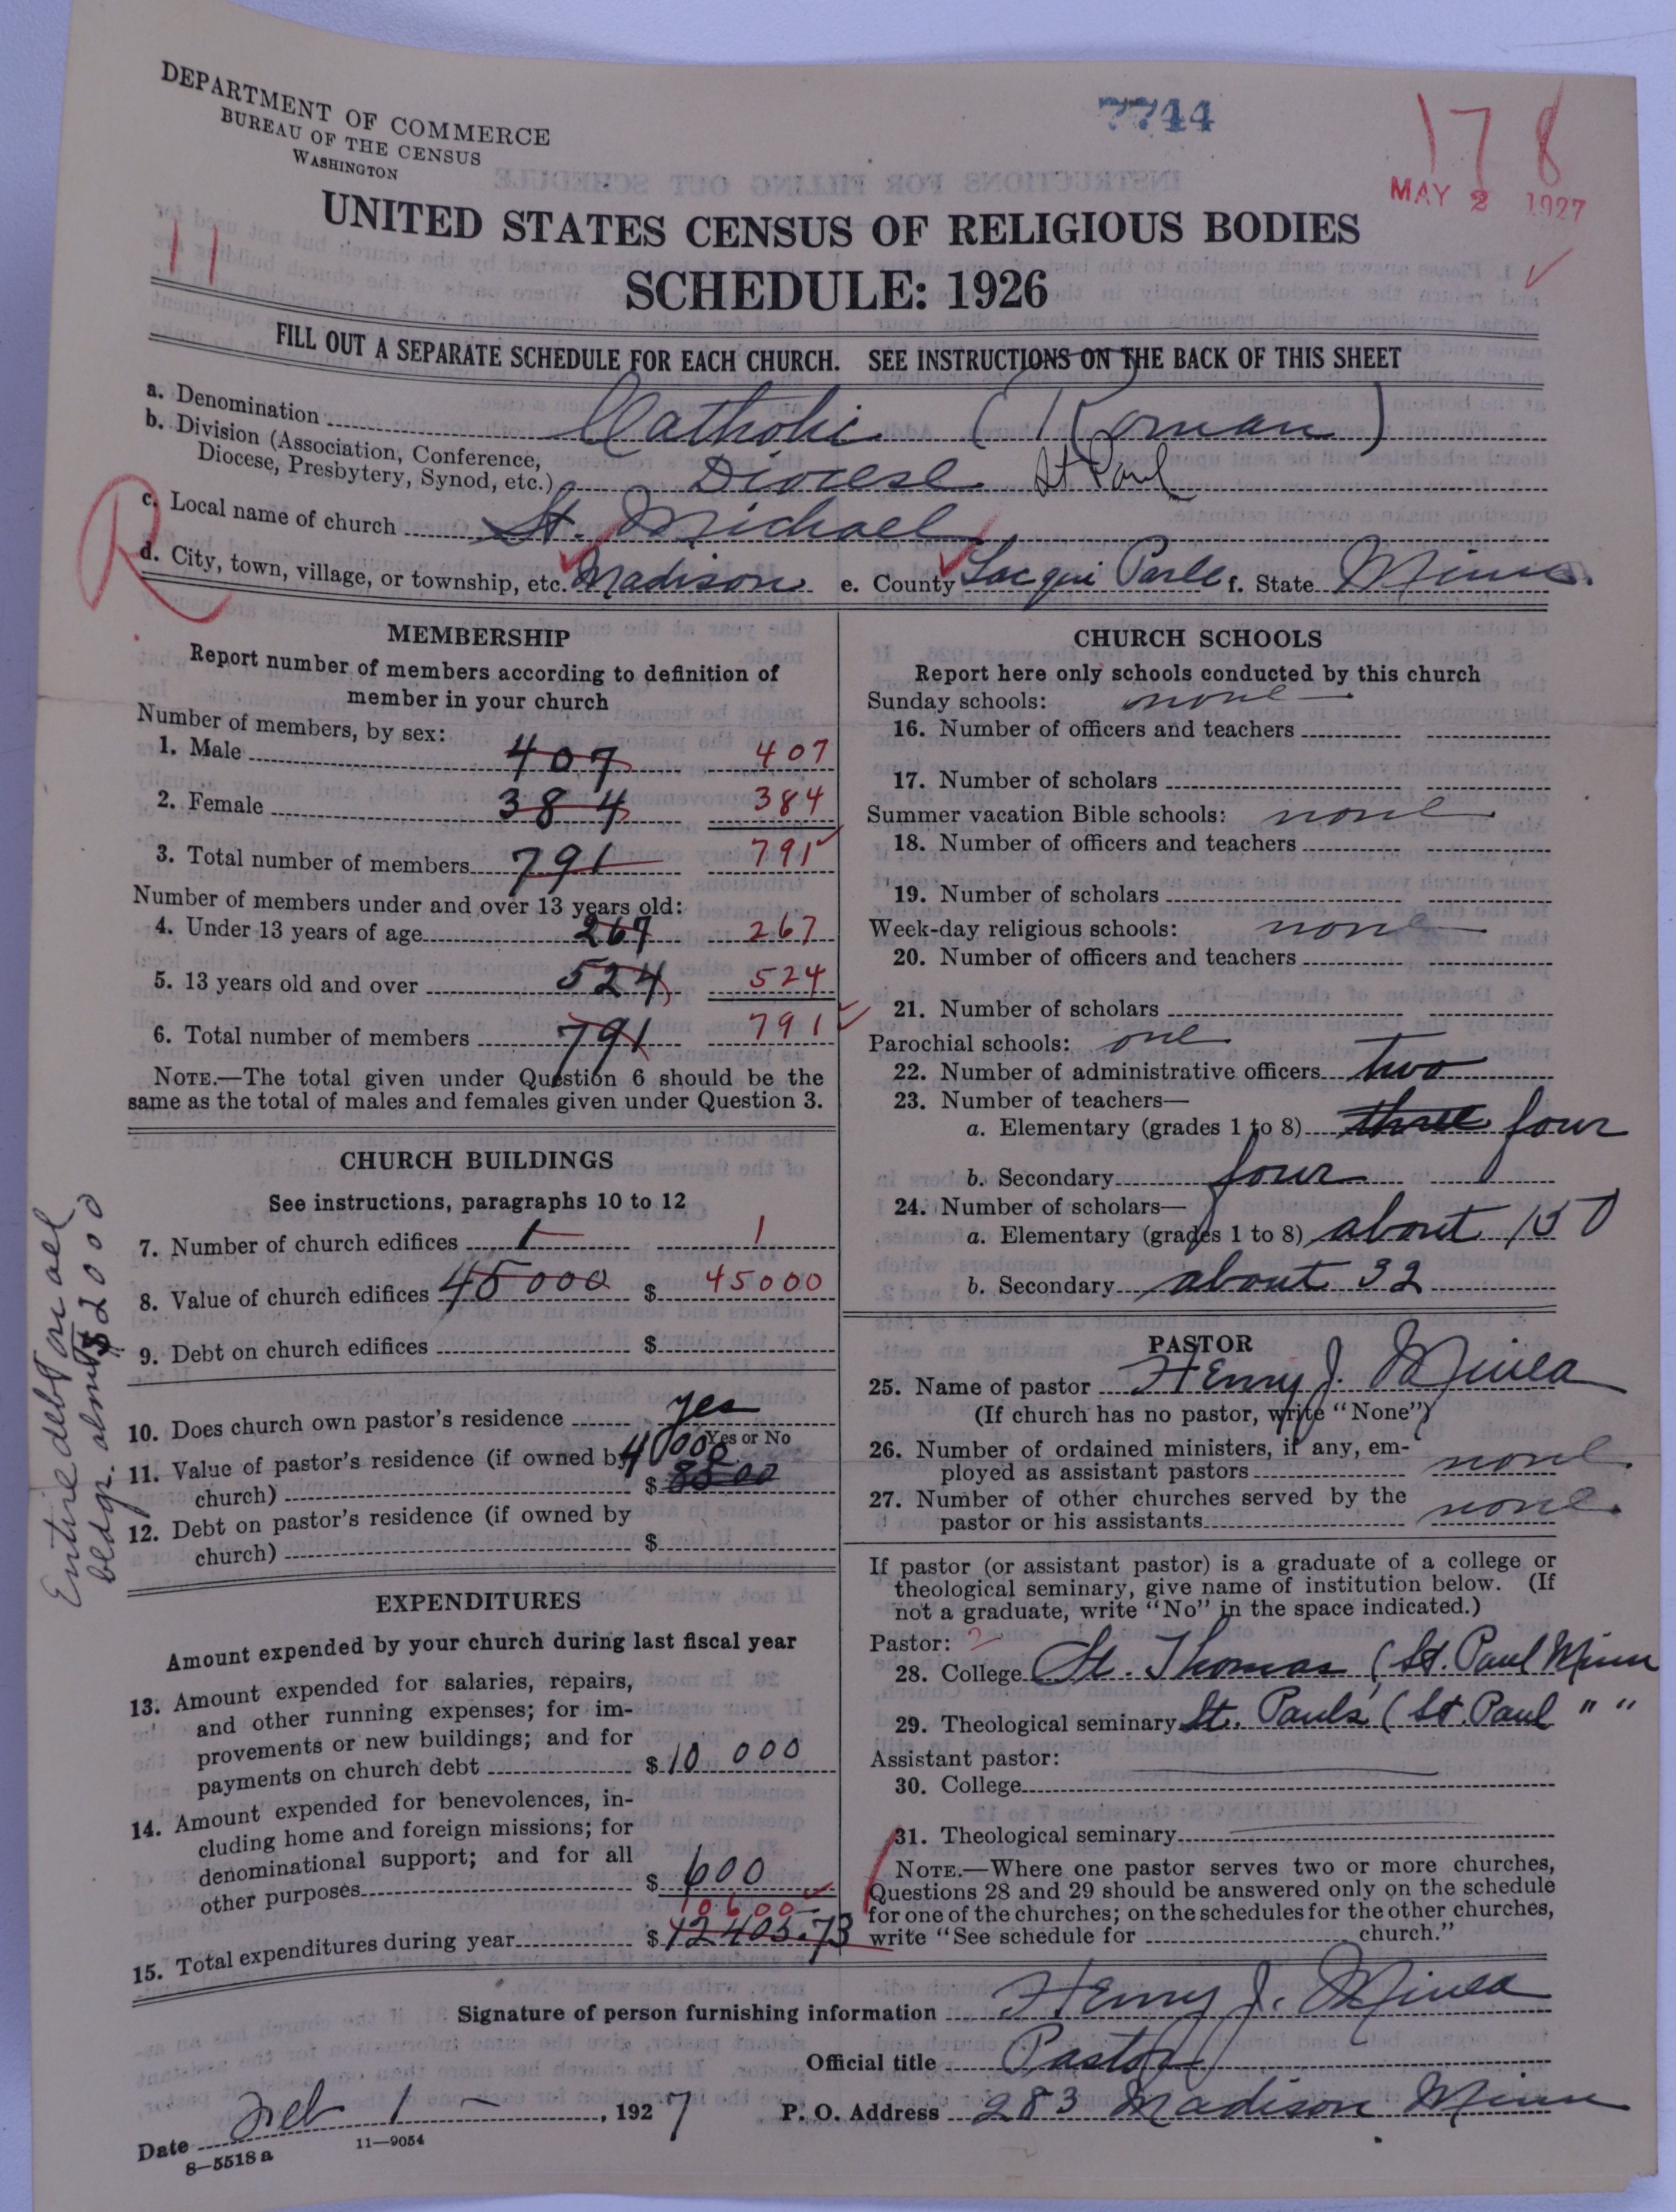 DEPARTMENT OF COMMERCE
BUREAU OF THE CENSUS
WASHINGTON
7744
178
MAY 2 1927
11
UNITED STATES CENSUS OF RELIGIOUS BODIES
SCHEDULE: 1926
FILL OUT A SEPARATE SCHEDULE FOR EACH CHURCH. SEE INSTRUCTIONS ON THE BACK OF THIS SHEET
a. Denomination Catholic (Roman)
b. Division (Association, Conference,
Diocese, Presbytery, Synod, etc.) Diocese St Paul
c. Local name of church St. Michael
R
d. City, town, village, or township, etc. Madison e. County Lac qui Parle f. State Minn.
MEMBERSHIP
Report number of members according to definition of
member in your church
Number of members, by sex:
1. Male 407 407
2. Female 384 384
3. Total number of members 791 791
Number of members under and over 13 years old:
4. Under 13 years of age 267 267
5. 13 years old and over 524 524
6. Total number of members 791 791
NOTE.—The total given under Question 6 should be the
same as the total of males and females given under Question 3.
CHURCH BUILDINGS
See instructions, paragraphs 10 to 12
7. Number of church edifices 1 1
8. Value of church edifices 45000 $ 45000
9. Debt on church edifices $
10. Does church own pastor's residence yes
Yes or No
11. Value of pastor's residence (if owned by 4000
church) $ 8500
12. Debt on pastor's residence (if owned by
church) $
Entire debt on all
bldgs. $2000
EXPENDITURES
Amount expended by your church during last fiscal year
13. Amount expended for salaries, repairs,
and other running expenses; for im-
provements or new buildings; and for
payments on church debt $ 10 000
14. Amount expended for benevolences, in-
cluding home and foreign missions; for
denominational support; and for all
other purposes $ 600
10600
15. Total expenditures during year $ 12403.73
CHURCH SCHOOLS
Report here only schools conducted by this church
Sunday schools: none
16. Number of officers and teachers
17. Number of scholars
Summer vacation Bible schools: none
18. Number of officers and teachers
19. Number of scholars
Week-day religious schools: none
20. Number of officers and teachers
21. Number of scholars
Parochial schools: one
22. Number of administrative officers two
23. Number of teachers—
a. Elementary (grades 1 to 8) three four
b. Secondary four
24. Number of scholars—
a. Elementary (grades 1 to 8) about 150
b. Secondary about 32
PASTOR
25. Name of pastor Henry J. Minea
(If church has no pastor, write "None")
26. Number of ordained ministers, if any, em-
ployed as assistant pastors none
27. Number of other churches served by the
pastor or his assistants none
If pastor (or assistant pastor) is a graduate of a college or
theological seminary, give name of institution below. (If
not a graduate, write "No" in the space indicated.)
Pastor: 2
28. College St. Thomas (St. Paul Minn
29. Theological seminary St. Pauls (St. Paul " "
Assistant pastor:
30. College
31. Theological seminary
NOTE.—Where one pastor serves two or more churches,
Questions 28 and 29 should be answered only on the schedule
for one of the churches; on the schedules for the other churches,
write "See schedule for church."
Signature of person furnishing information Henry J. Minea
Official title Pastor
Date Feb 1 – , 1927 P. O. Address 283 Madison Minn
8—5518 a 11—9054